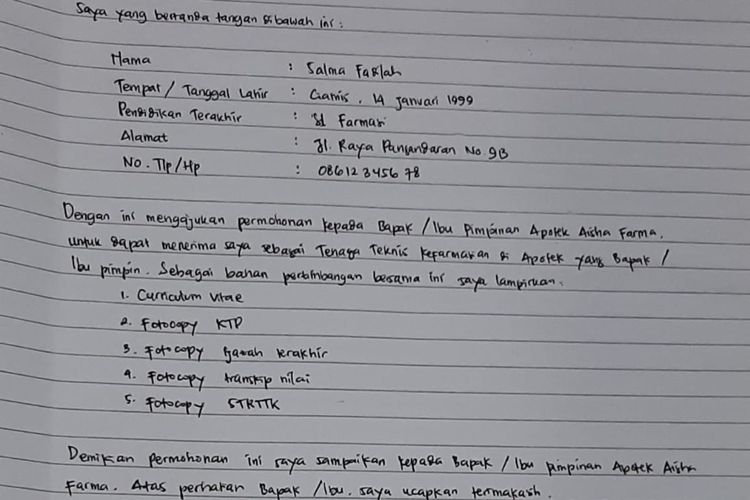 Saya yang bertanda tangan dibawah ini :
Nama : Salma Fadlah
Tempat / Tanggal Lahir : Ciamis, 14 Januari 1999
Pendidikan Terakhir : S1 Farmasi
Alamat : Jl. Raya Pangandaran No. 9B
No. Tlp / Hp : 086123456 78
Dengan ini mengajukan permohonan kepada Bapak / Ibu Pimpinan Apotek Aisha Farma.
untuk dapat menerima saya sebagai Tenaga Teknis Kefarmasian di Apotek yang Bapak /
Ibu pimpin. Sebagai bahan pertimbangan bersama ini saya lampirkan.
1. Curriculum Vitae
2. Fotocopy KTP
3. Fotocopy Ijazah terakhir
4. Fotocopy transkip nilai
5. Fotocopy STRTTK
Demikian permohonan ini saya sampaikan kepada Bapak / Ibu pimpinan Apotek Aisha
Farma. Atas perhatian Bapak / Ibu. saya ucapkan terimakasih.